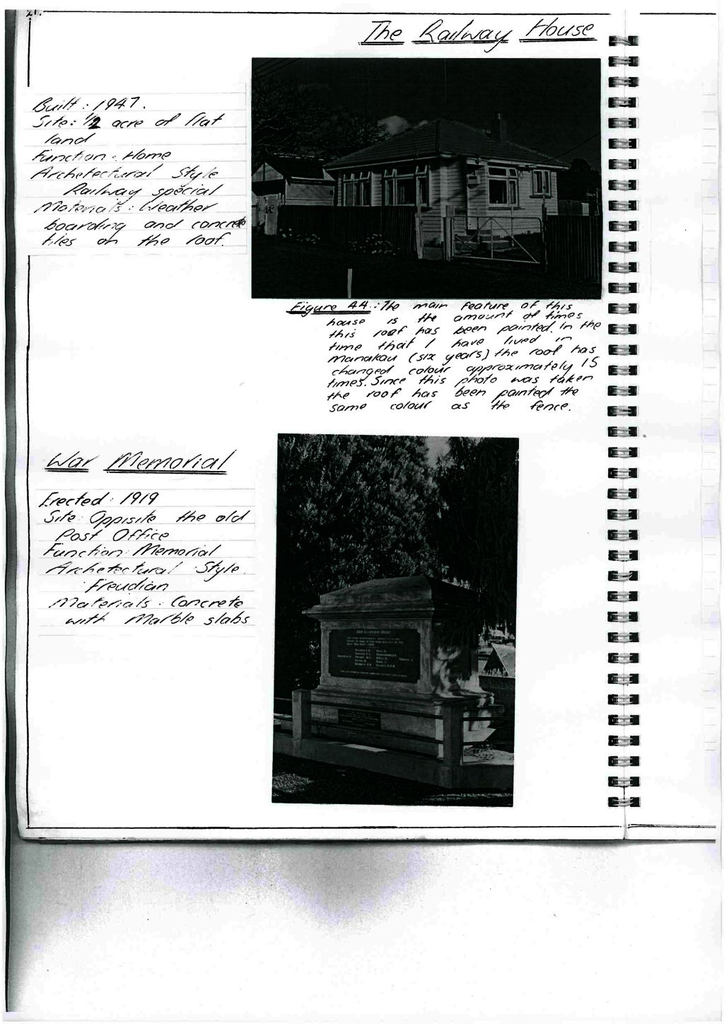 The Railway House
Built : 1947.
Site : 1/2 acre of flat
land
Function : Home
Architectural Style
Railway special
Materials : Weather
boarding and concrete
tiles on the roof.
Figure 44 : The main feature of this
house is the amount of times
this roof has been painted. In the
time that I have lived in
Manakau (six years) the roof has
changed colour approximately 15
times. Since this photo was taken
the roof has been painted the
same colour as the fence.
War Memorial
Erected : 1919
Site : Oppisite the old
Post Office
Function : Memorial
Architectural Style
: Freudian
Materials : Concrete
with Marble slabs